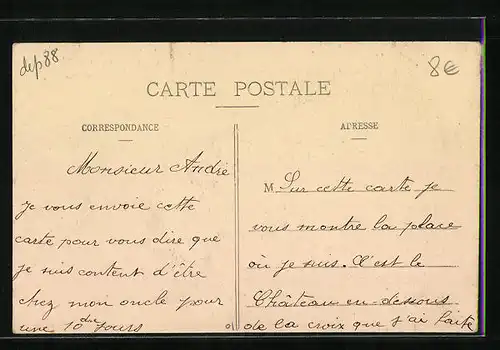 dep 88
8€
CARTE POSTALE
CORRESPONDANCE
ADRESSE
Monsieur André
Je vous envoie cette
carte pour vous dire que
je suis content d'être
chez mon oncle pour
une 10 jours
M Sur cette carte je
vous montre la place
où je suis. C'est le
Château en-dessous
de la croix que j'ai faite